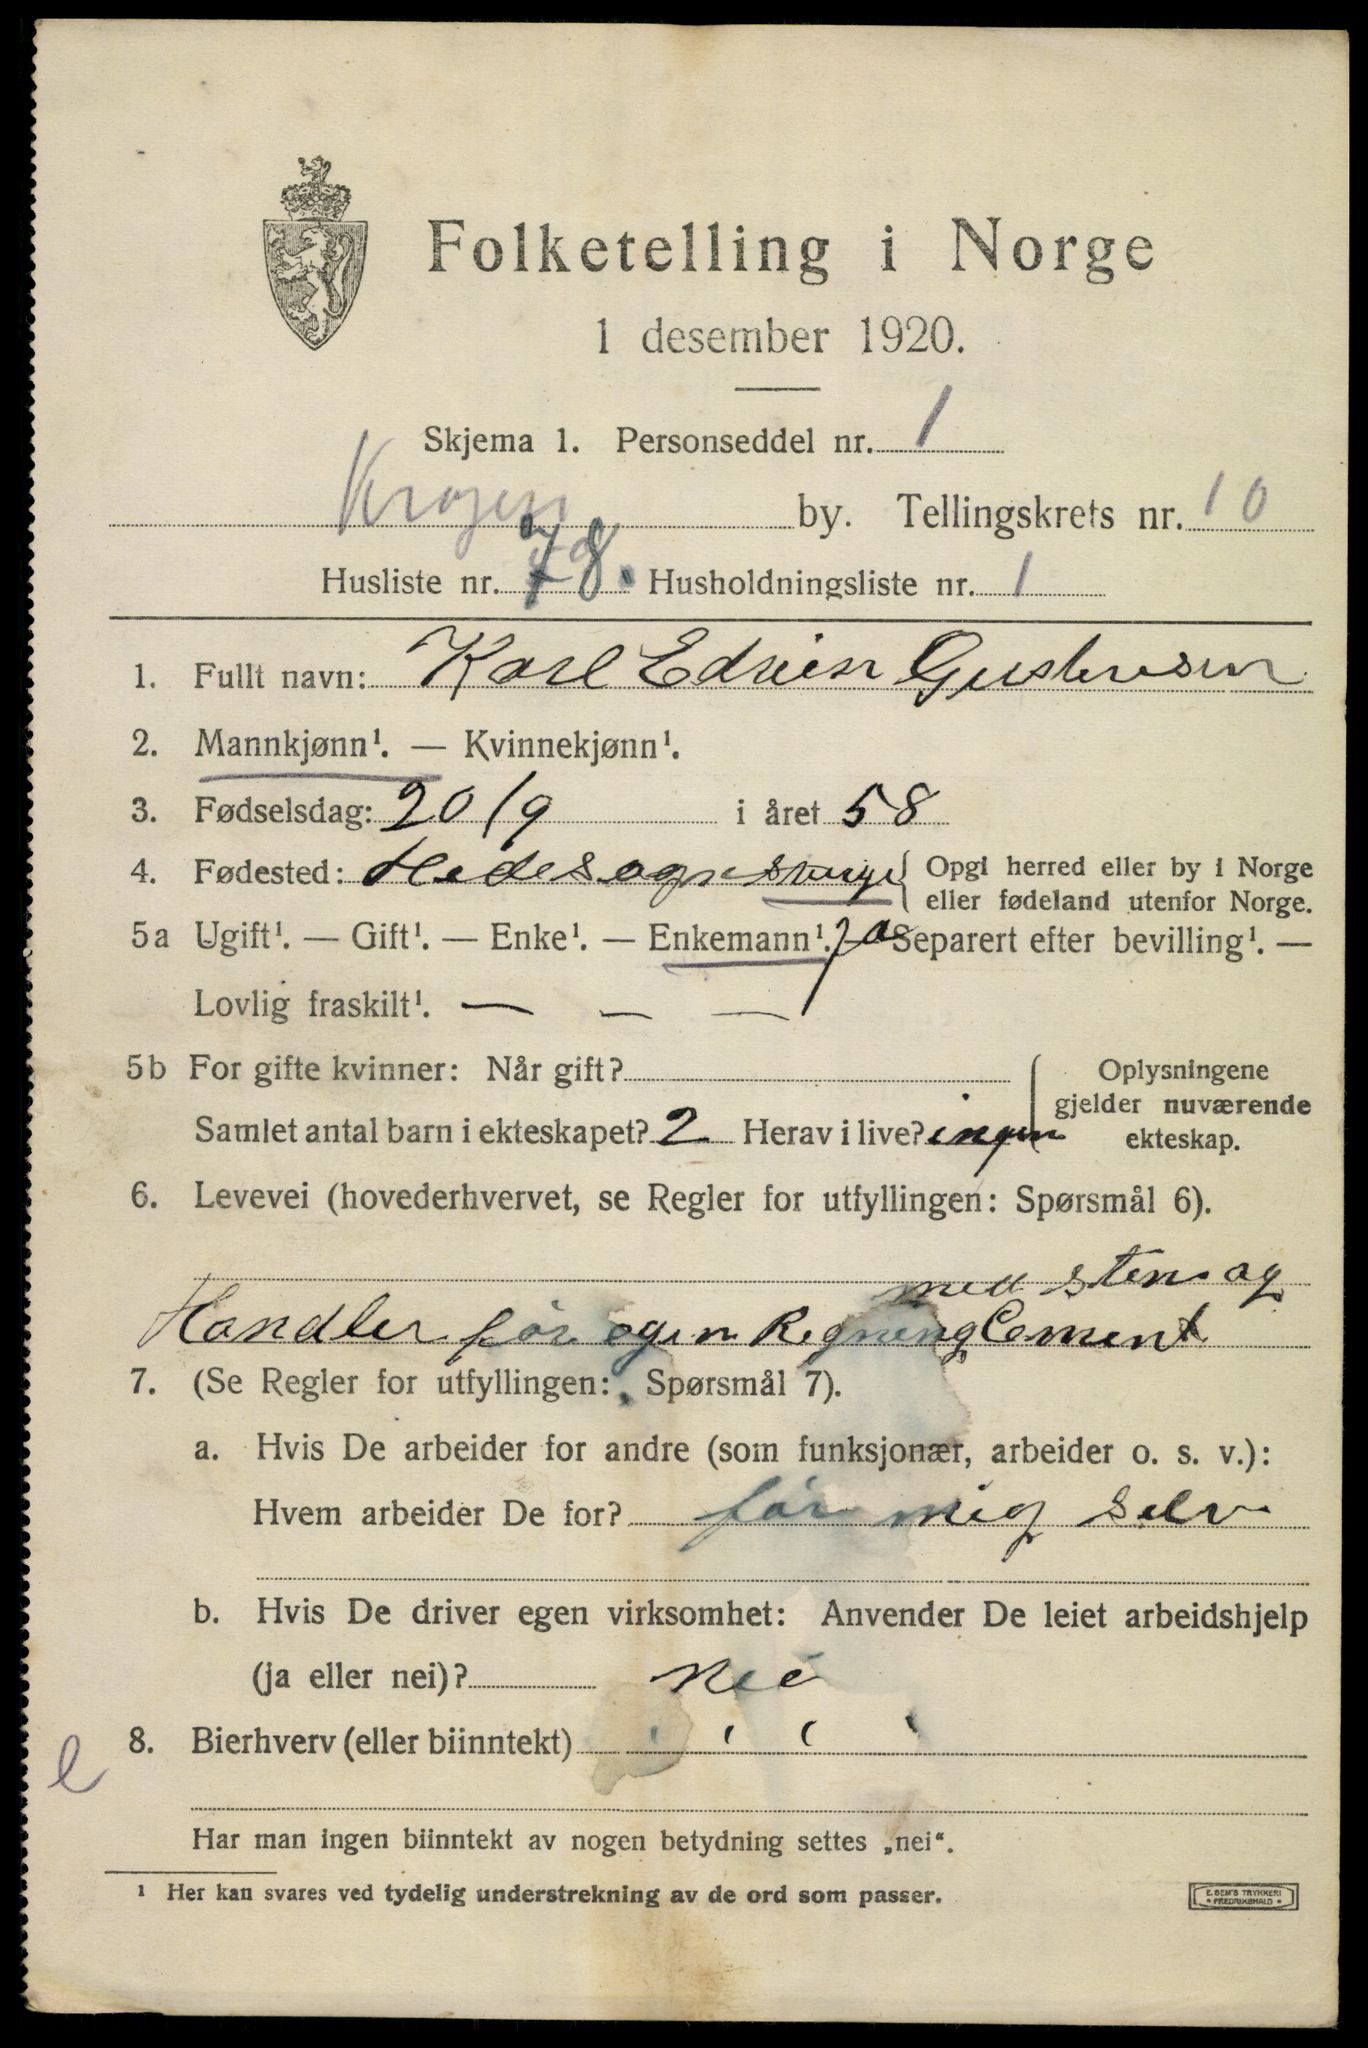 Folketelling i Norge
1 desember 1920.
Skjema 1. Personseddel nr. 1
by. Tellingskrets nr. 10
Husliste nr. 78. Husholdningsliste nr. 1
1. Fullt navn: Karl
2. Mannkjønn¹. — Kvinnekjønn¹.
3. Fødselsdag: 20/9 i året 58
4. Fødested: { Opgi herred eller by i Norge
eller fødeland utenfor Norge.
5a Ugift¹. — Gift¹. — Enke¹. — Enkemann¹. ja Separert efter bevilling¹. —
Lovlig fraskilt¹. — — —
5b For gifte kvinner: Når gift? { Oplysningene
gjelder nuværende
Samlet antal barn i ekteskapet? 2 Herav i live? ingen
ekteskap.
6. Levevei (hovederhvervet, se Regler for utfyllingen: Spørsmål 6).
med Sten og
Handler før egen Regning Cement
7. (Se Regler for utfyllingen: Spørsmål 7).
a. Hvis De arbeider for andre (som funksjonær, arbeider o. s. v.):
Hvem arbeider De for? før mig selv
b. Hvis De driver egen virksomhet: Anvender De leiet arbeidshjelp
(ja eller nei)? Nei
8. Bierhverv (eller biinntekt)
Har man ingen biinntekt av nogen betydning settes „nei“.
¹ Her kan svares ved tydelig understrekning av de ord som passer.
E. SEM'S TRYKKERI
* FREDRIKSHALD *